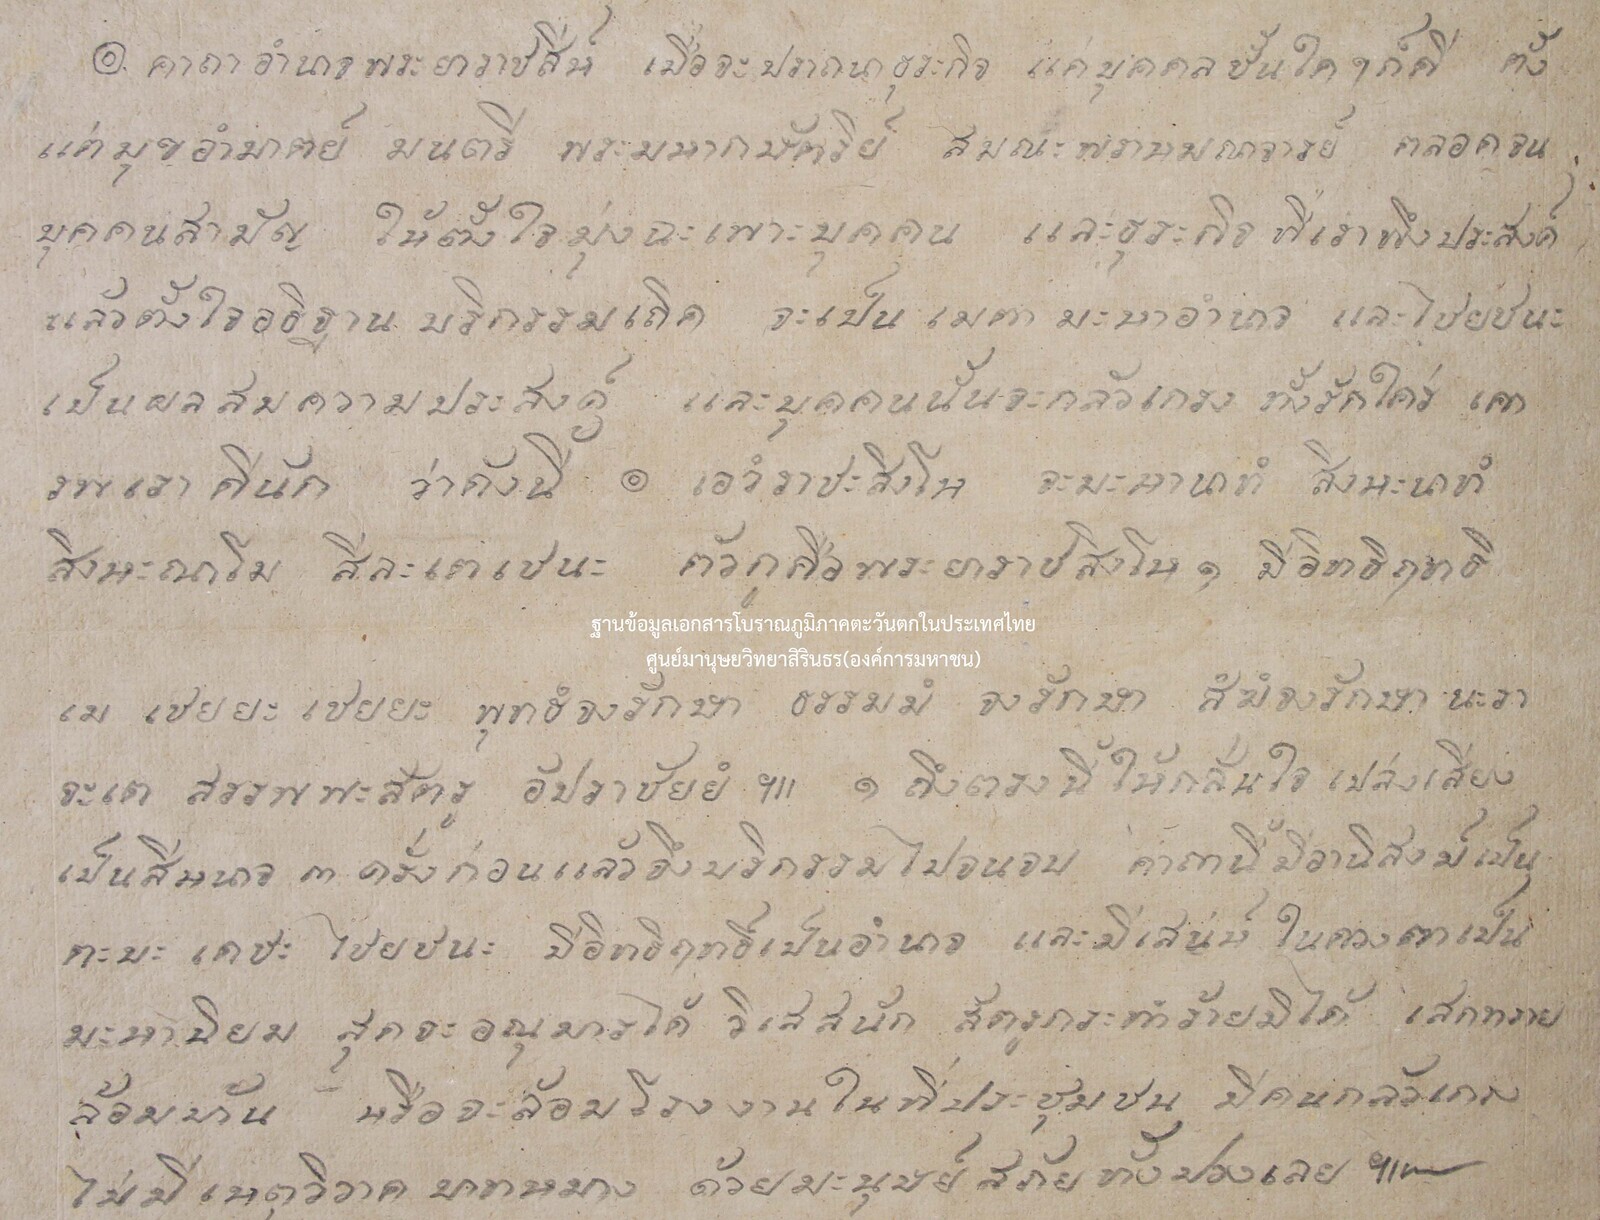 ๏ คาถาอำนาจพระยาราชสีห์ เมื่อจะปราถนาธุระกิจ แด่บุคคลชั้นใดๆก็ดี ตั้ง
แต่มุขอำมาตย์ มนตรี พระมหากษัตริย์ สมณะพราหมณาจารย์ ตลอดจน
บุคคนสามัญ ให้ตั้งใจมุ่งฉะเพาะบุคคน และธุระกิจที่เราพึงประสงค์
แล้วตั้งใจอธิฐานบริกรรมเถิด จะเป็นเมตามะหาอำนาจ และไชยชนะ
เป็นผลสมความประสงค์ และบุคคนนั้นจะกลัวเกรง ทั้งรักใคร่ เคา
รพเราดีนัก ว่าดังนี้ ๏ เอวํราชะสิงโห จะมะหานาทํ สิงหะนาทํ
สิงหะณาโม สีละเตเชนะ ตัวกูคือพระยาราชสิงโห ๑ มีอิทธิฤทธิ
ฐานข้อมูลเอกสารโบราณภูมิภาคตะวันตกในประเทศไทย
ศูนย์มานุษยวิทยาสิรินธร(องค์การมหาชน)
เม เชยยะ เชยยะ พุทธํจงรักษา ธรรมมํ จงรักษา สํฆํจงรักษา นะรา
จะเต สรรพพะสัตรู อัปราชัยยํ ฯ๚ ๑ ถึงตรงนี้ให้กลั่นใจ เปล่งเสียง
เป็นสีหนาจ ๓ ครั้งก่อนแล้วจึงบริกรรมไปจนจบ คาถานี้มีอานิสงษ์เป็น
ตะบะ เดชะ ไชยชนะ มีอิทธิฤทธิ์เป็นอำนาจ และมีเสน่ห์ในดวงตาเป็น
มะหานิยม สุดจะอณุมารได้ วิเสสนัก สัตรูกระทำร้ายมิได้ เสกทราย
ล้อมบ้าน หรือจะล้อมโรงงานในที่ประชุมชน มีคนกลัวเกรง
ไม่มีเหตุวิวาด บาทหมาง ด้วยมะนุษย์สภัยทั้งปวงเลย ฯ๚